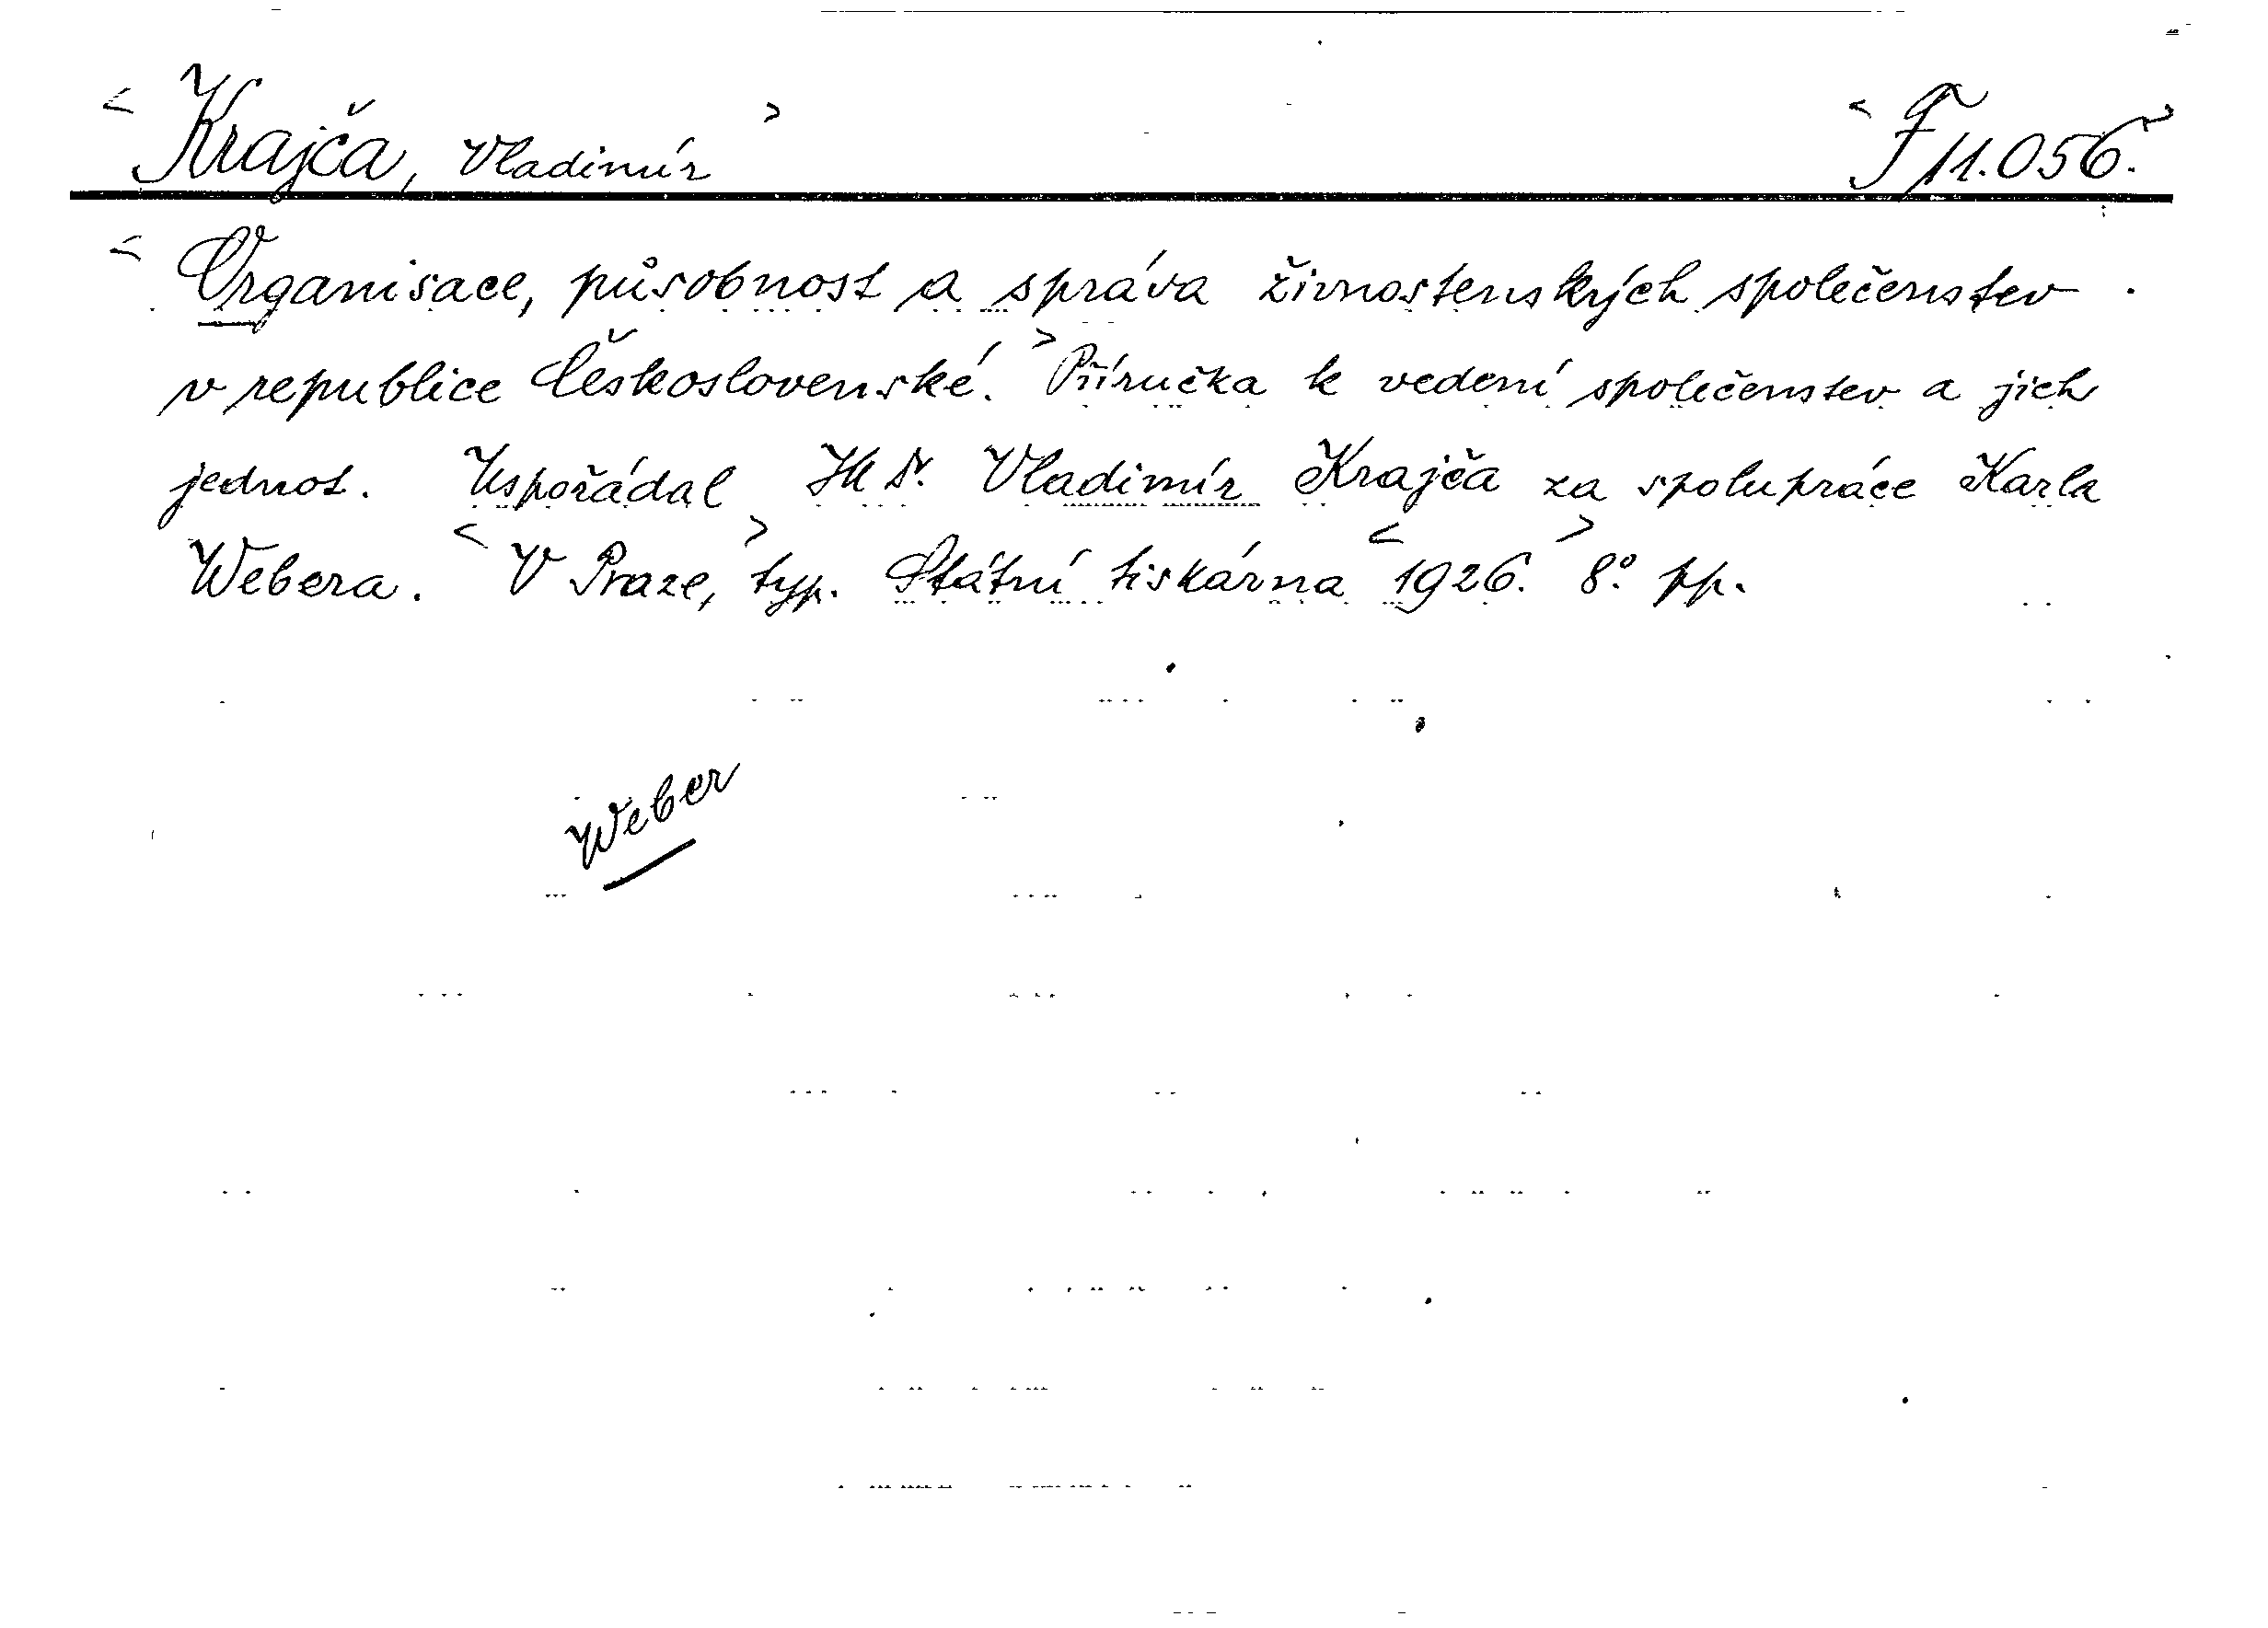 <Krajča, Vladimír> <F 11.056.>
<Organisace, působnost a správa živnostenských společenstev
v republice Československé.> Příručka k vedení společenstev a jich
jednot. Uspořádal JUDr. Vladimír Krajča za spolupráce Karla
Webera. <V Praze,> typ. Státní tiskárna <1926.> 8° pp.
Weber